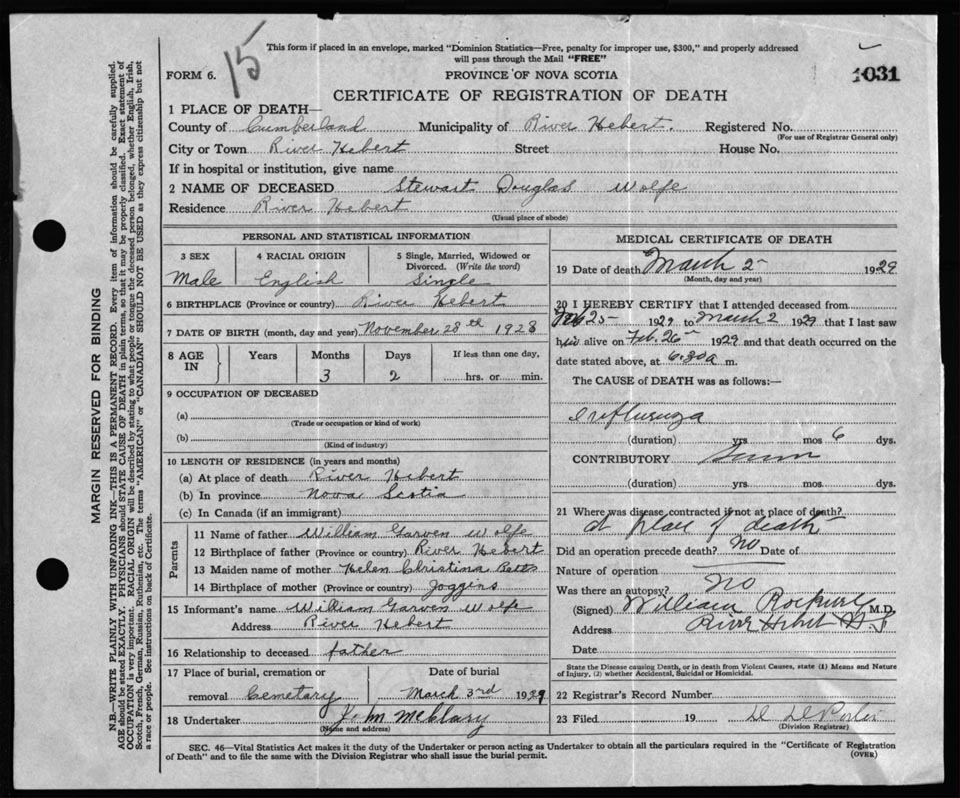 15
This form if placed in an envelope, marked "Dominion Statistics—Free, penalty for improper use, $300," and properly addressed
will pass through the Mail "FREE"
FORM 6.
PROVINCE OF NOVA SCOTIA
1031
CERTIFICATE OF REGISTRATION OF DEATH
1 PLACE OF DEATH—
County of Cumberland Municipality of River Hebert. Registered No.
(For use of Registrar General only)
City or Town River Hebert Street House No.
If in hospital or institution, give name
2 NAME OF DECEASED Stewart Douglas Wolfe
Residence River Hebert
(Usual place of abode)
PERSONAL AND STATISTICAL INFORMATION
3 SEX 4 RACIAL ORIGIN 5 Single, Married, Widowed or
Divorced. (Write the word)
Male English Single
6 BIRTHPLACE (Province or country) River Hebert
7 DATE OF BIRTH (month, day and year) November 28th 1928
8 AGE IN Years Months Days If less than one day,
3 2 hrs. or min.
9 OCCUPATION OF DECEASED
(a)
(Trade or occupation or kind of work)
(b)
(Kind of industry)
10 LENGTH OF RESIDENCE (in years and months)
(a) At place of death River Hebert
(b) In province Nova Scotia
(c) In Canada (if an immigrant)
Parents
11 Name of father William Garven Wolfe
12 Birthplace of father (Province or country) River Hebert
13 Maiden name of mother Helen Christina Betts
14 Birthplace of mother (Province or country) Joggins
15 Informant's name William Garven Wolfe
Address River Hebert
16 Relationship to deceased father
17 Place of burial, cremation or Date of burial
removal Cemetary March 3rd 1929
18 Undertaker John McClary
(Name and address)
MEDICAL CERTIFICATE OF DEATH
19 Date of death March 2 1929
(Month, day and year)
20 I HEREBY CERTIFY that I attended deceased from
Feb 25 1929 to March 2 1929 that I last saw
him alive on Feb. 26 1929 and that death occurred on the
date stated above, at 6.30a m.
The CAUSE of DEATH was as follows:—
Influenza
(duration) yrs mos 6 dys.
CONTRIBUTORY
(duration) yrs. mos. dys.
21 Where was disease contracted if not at place of death?
at place of death
Did an operation precede death? No Date of
Nature of operation
Was there an autopsy? No
(Signed) William Rockwell M.D.
Address River Hebert N.S
Date
State the Disease causing Death, or in death from Violent Causes, state (1) Means and Nature
of Injury, (2) whether Accidental, Suicidal or Homicidal.
22 Registrar's Record Number
23 Filed 19
(Division Registrar)
SEC. 46—Vital Statistics Act makes it the duty of the Undertaker or person acting as Undertaker to obtain all the particulars required in the "Certificate of Registration
of Death" and to file the same with the Division Registrar who shall issue the burial permit.
(OVER)
MARGIN RESERVED FOR BINDING
N.B.—WRITE PLAINLY WITH UNFADING INK—THIS IS A PERMANENT RECORD. Every item of information should be carefully supplied.
AGE should be stated EXACTLY. PHYSICIANS should STATE CAUSE OF DEATH in plain terms, so that it may be properly classified. Exact statement of
OCCUPATION is very important. RACIAL ORIGIN will be described by stating to what people or tongue the deceased person belonged, whether English, Irish,
Scotch, French, German, Russian, Ruthenian, etc. The terms "AMERICAN" or "CANADIAN" SHOULD NOT BE USED as they express citizenship but not
a race or people. See instructions on back of Certificate.